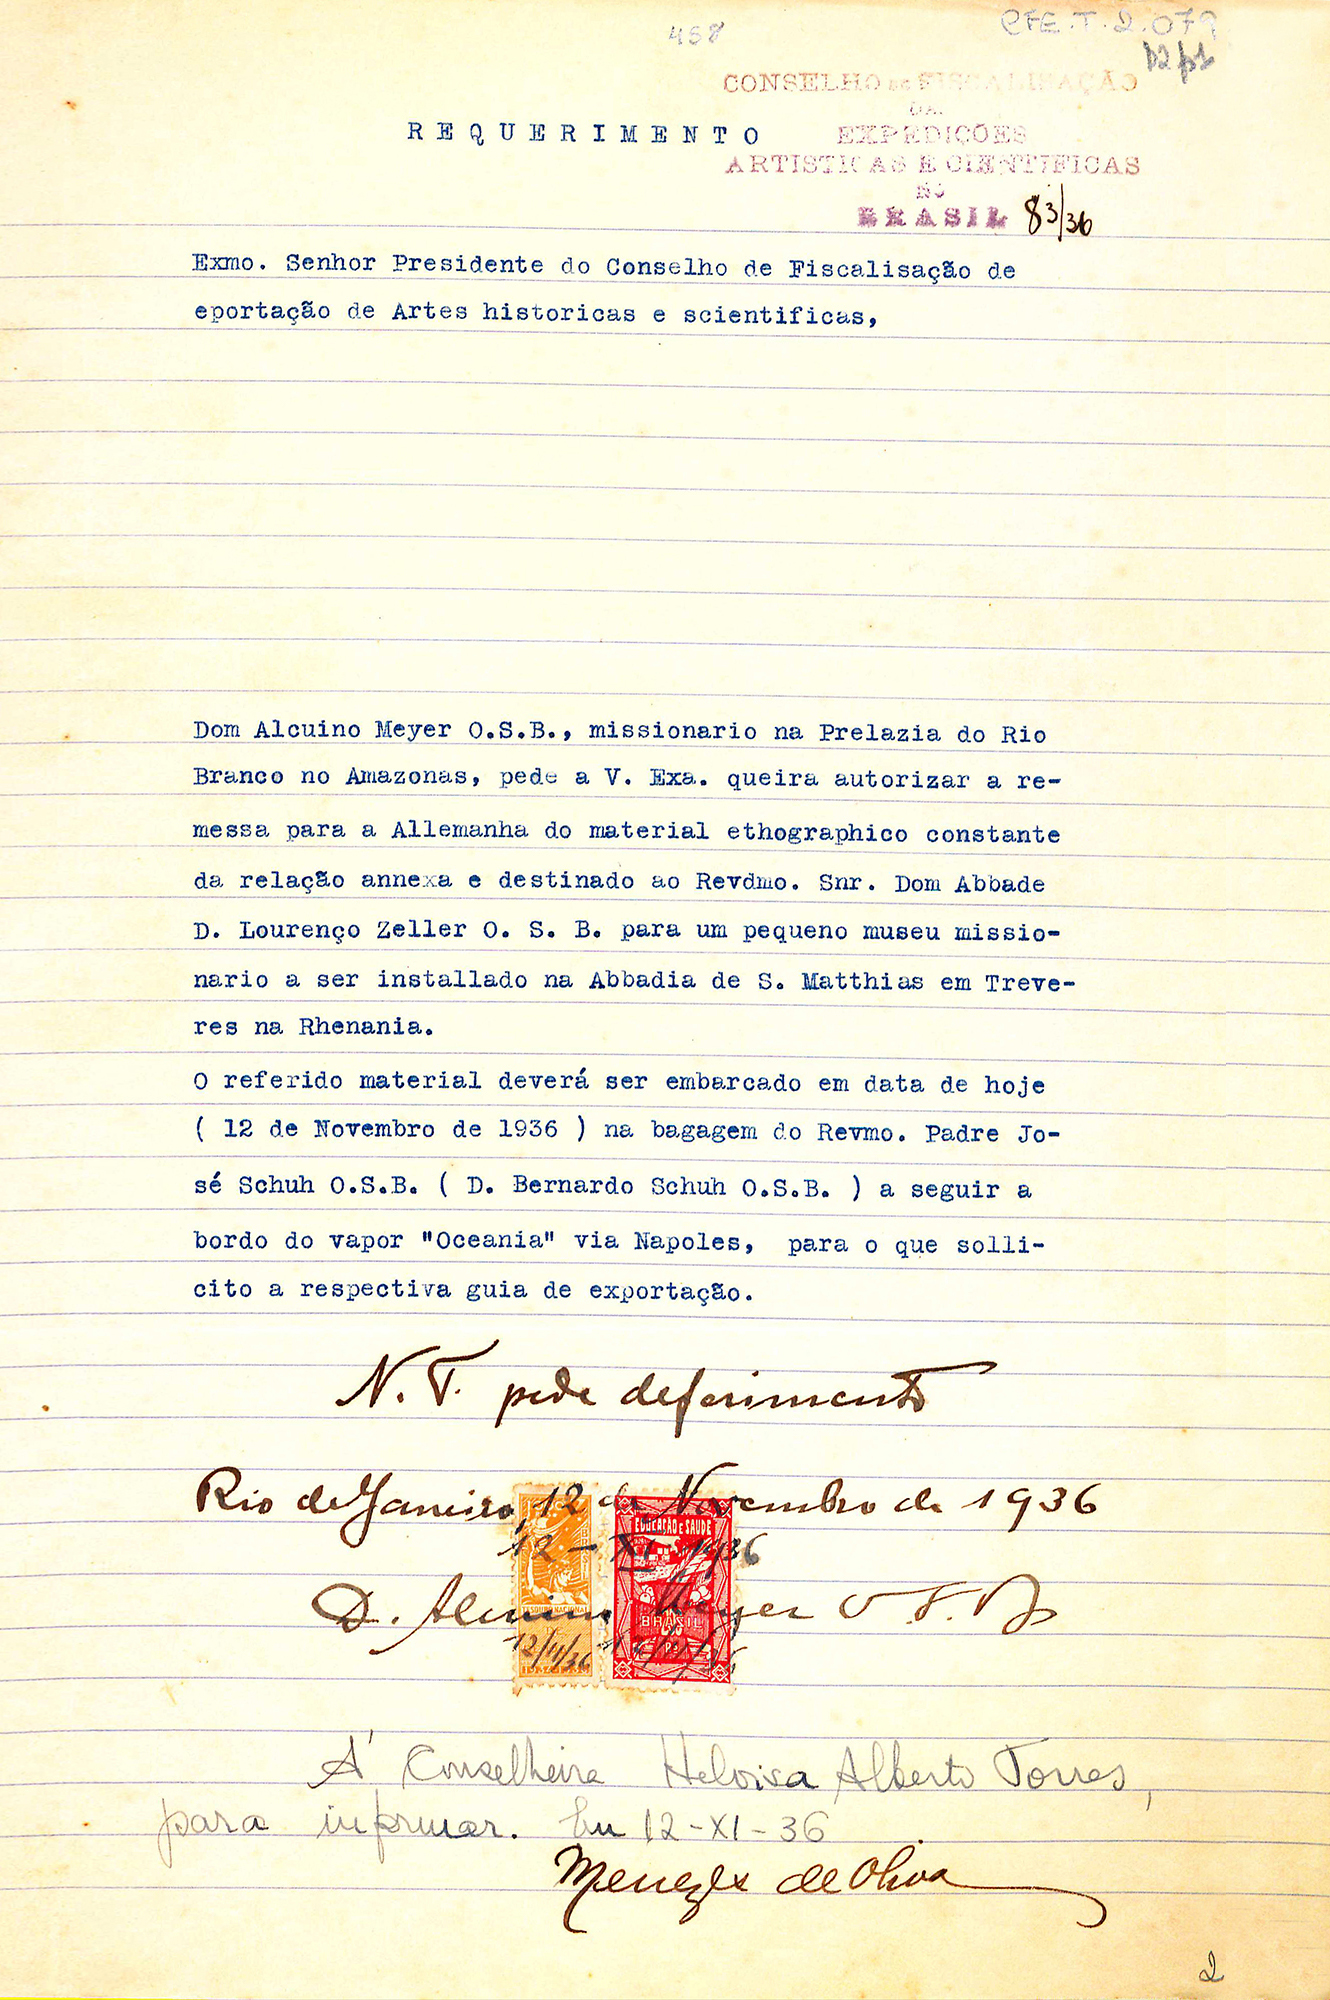 458
CFE.T.2.079
D2 p1
CONSELHO DE FISCALISAÇÃO
DAS
EXPEDIÇÕES
ARTISTICAS E CIENTIFICAS
NO
BRASIL 83/36
REQUERIMENTO
Exmo. Senhor Presidente do Conselho de Fiscalisação de
eportação de Artes historicas e scientificas,
Dom Alcuino Meyer O.S.B., missionario na Prelazia do Rio
Branco no Amazonas, pede a V. Exa. queira autorizar a re-
messa para a Allemanha do material ethographico constante
da relação annexa e destinado ao Revdmo. Snr. Dom Abbade
D. Lourenço Zeller O. S. B. para um pequeno museu missio-
nario a ser installado na Abbadia de S. Matthias em Treve-
res na Rhenania.
O referido material deverá ser embarcado em data de hoje
( 12 de Novembro de 1936 ) na bagagem do Revmo. Padre Jo-
sé Schuh O.S.B. ( D. Bernardo Schuh O.S.B. ) a seguir a
bordo do vapor "Oceania" via Napoles, para o que solli-
cito a respectiva guia de exportação.
N. T. pede deferimento
Rio de Janeiro, 12 de Novembro de 1936
EDUCAÇÃO E SAUDE
12 - XI 1936
TESOURO NACIONAL
D. Alcuino Meyer O.S.B.
BRASIL
12/11/36
Á Conselheira Heloisa Alberto Torres,
para informar. Em 12-XI-36
Menezes de Oliva
2